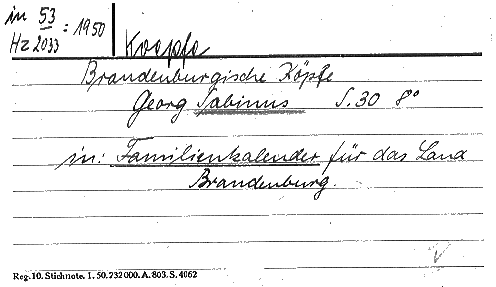 in 53 : 1950
Hz 2033
Koepfe
Brandenburgische Köpfe
Georg Sabinus S. 30 8°
in: Familienkalender für das Land
Brandenburg.
Reg. 10. Stichnote. I. 50. 232 000. A. 803. S. 4062